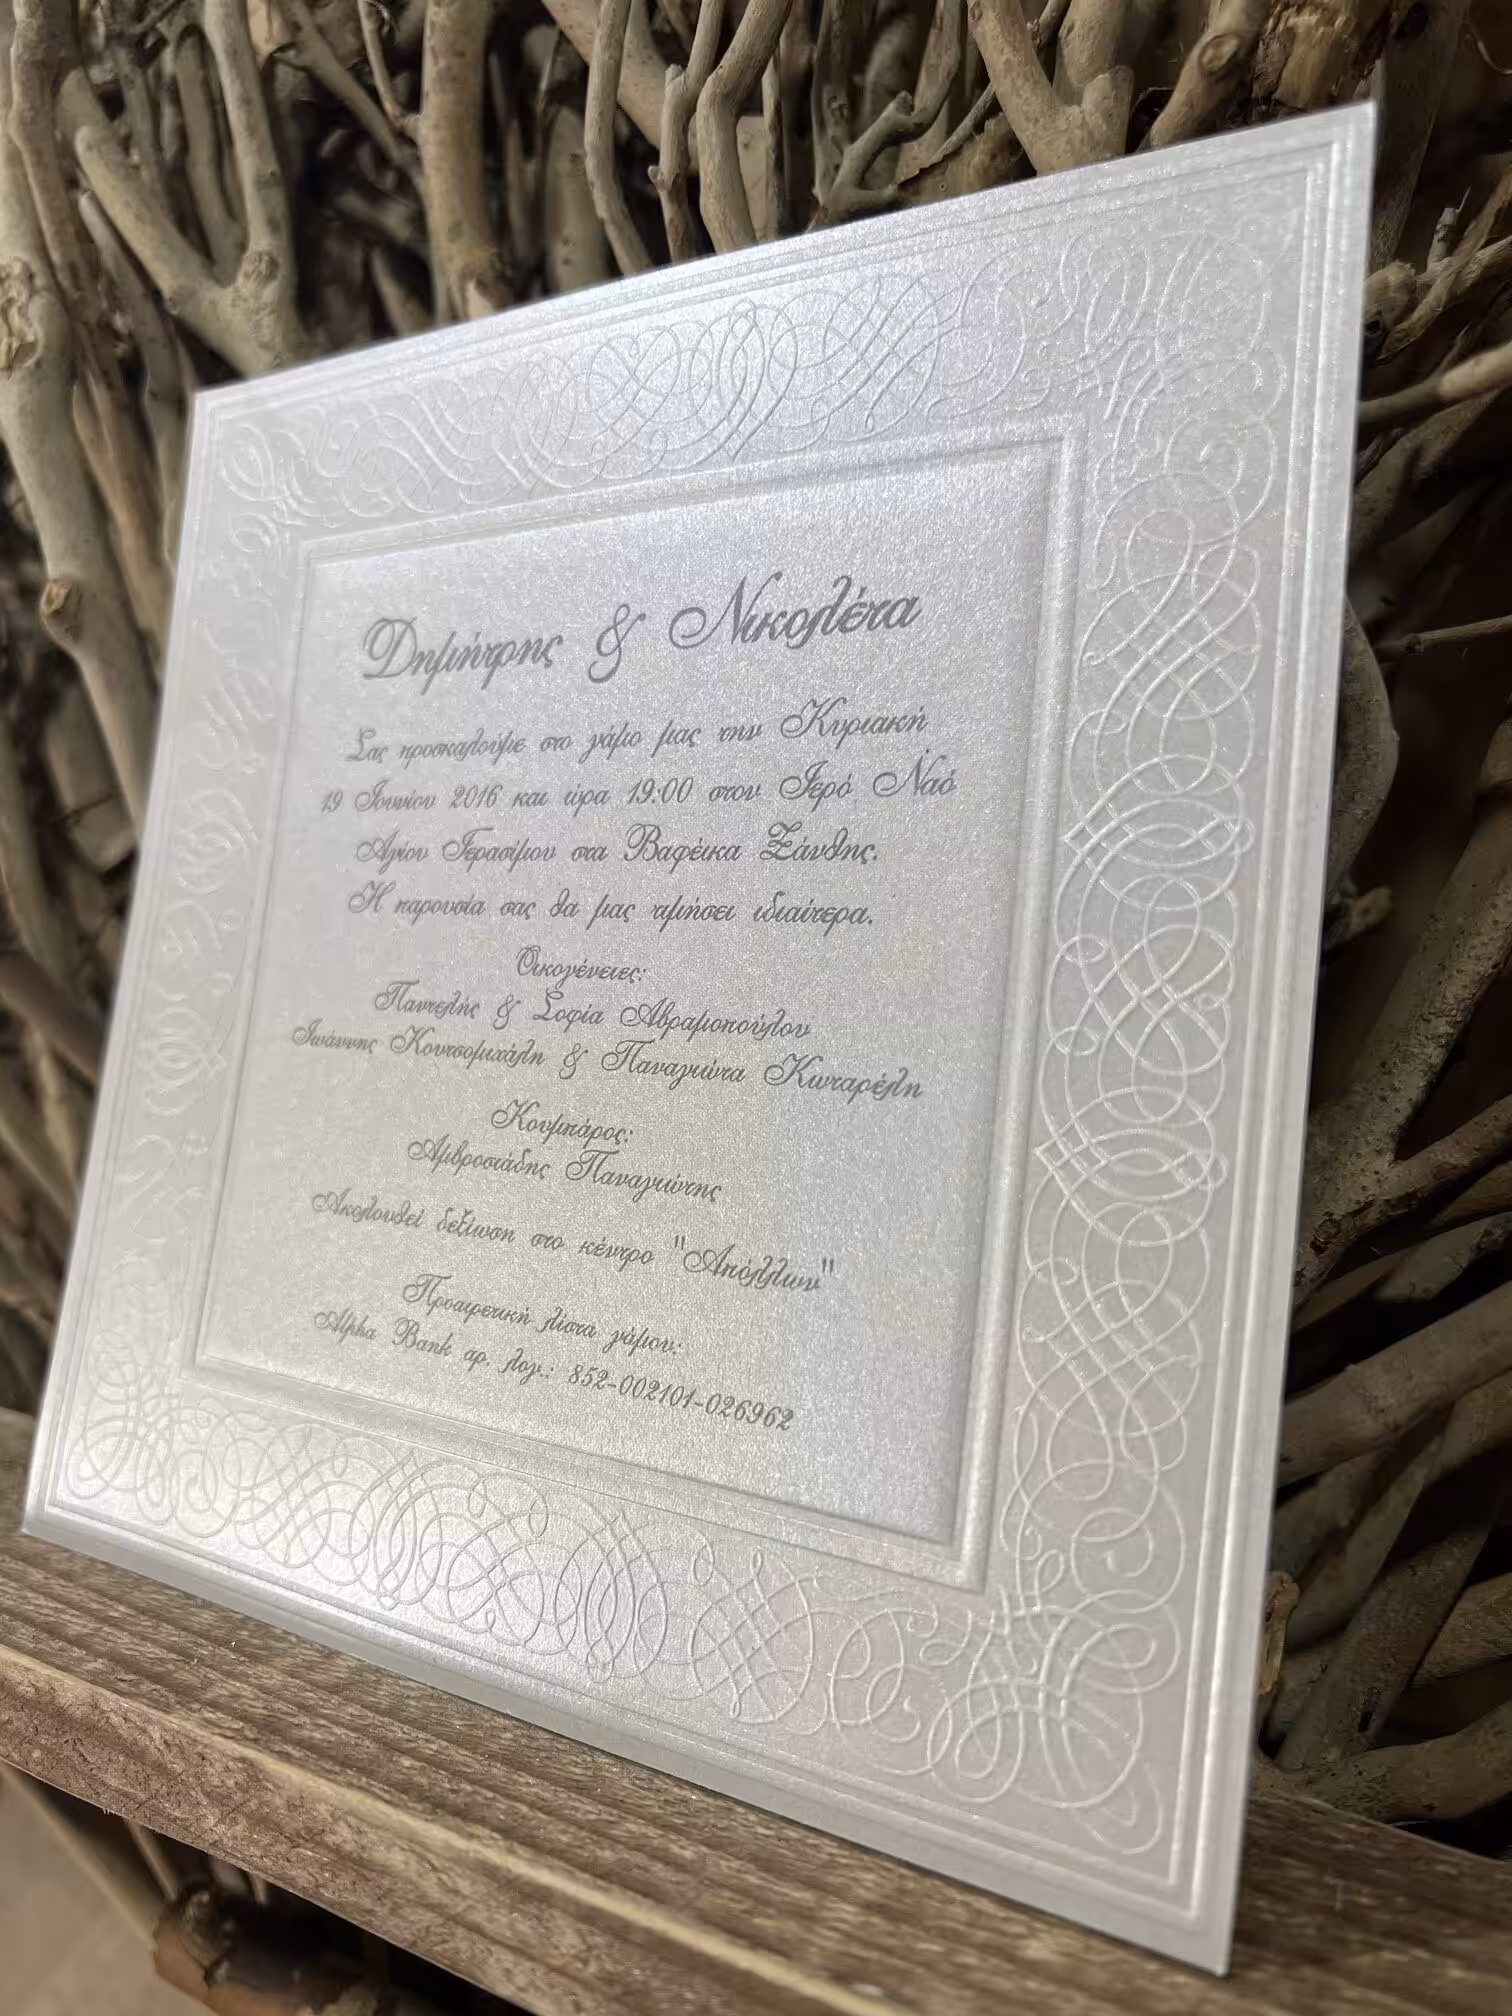 Δημήτρης & Νικολέτα
Σας προσκαλούμε στο γάμο μας την Κυριακή
19 Ιουνίου 2016 και ώρα 19:00 στον Ιερό Ναό
Αγίου Γερασίμου στα Βαφέικα Ξάνθης.
Η παρουσία σας θα μας τιμήσει ιδιαίτερα.
Οικογένειες:
Παντελής & Σοφία Αβραμοπούλου
Ιωάννης Κουτσομιχάλη & Παναγιώτα Κωταρέλη
Κουμπάρος:
Αμβροσιάδης Παναγιώτης
Ακολουθεί δεξίωση στο κέντρο "Απόλλων"
Προαιρετική λίστα γάμου:
Alpha Bank αρ. λογ.: 852-002101-026962